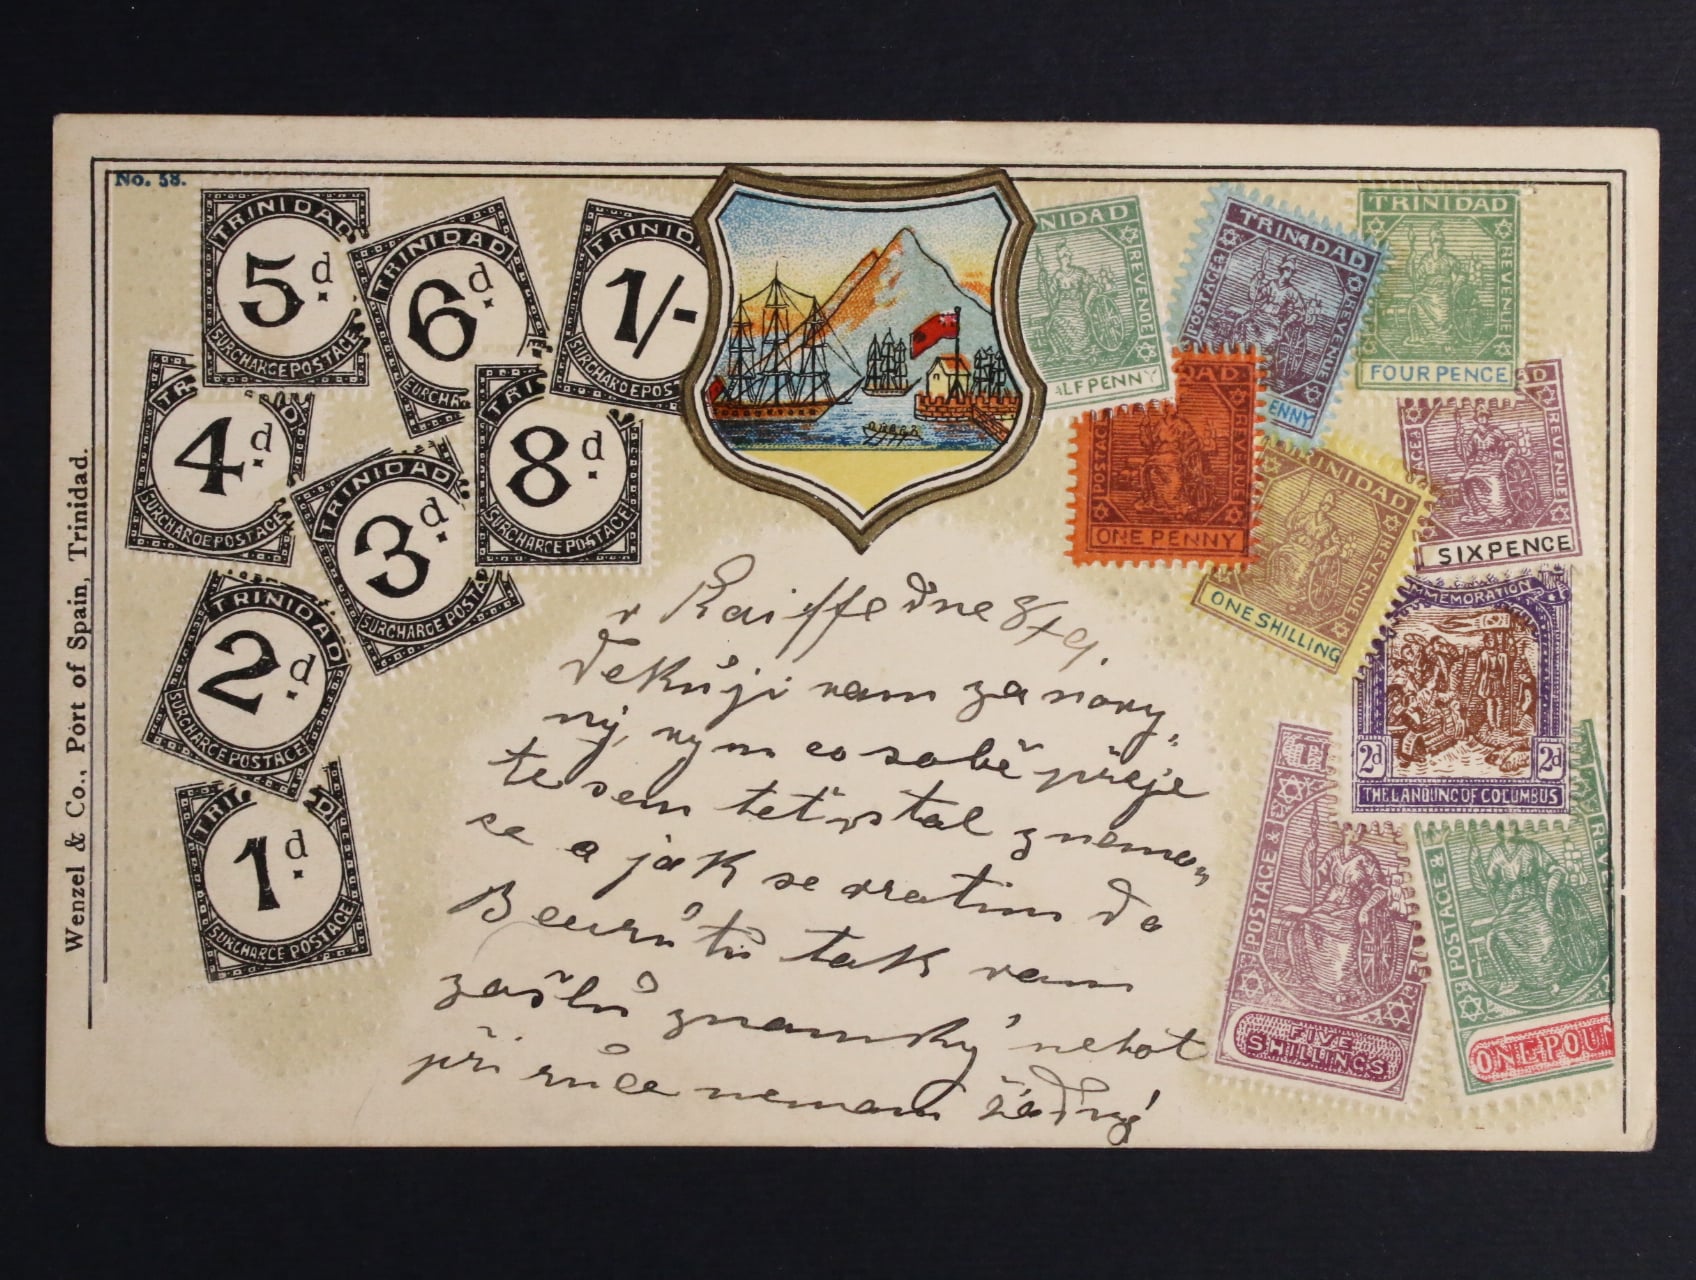 No. 58.
TRINIDAD
5d.
SURCHARGE POSTAGE
TRINIDAD
6d.
SURCHA
TRINID
1/-
SURCHARGE POST
TR D
4d.
SURCHARGE POSTAGE
TRINIDAD
3d.
SURCHARGE POSTA
TRI
8d.
SURCHARGE POSTAGE
TRINIDAD
2d.
SURCHARGE POSTAGE
TRI D
1d.
SURCHARGE POSTAGE
Wenzel & Co., Port of Spain, Trinidad.
NIDAD
REVENUE
ALFPENNY
TRINIDAD
POSTAGE &
REVENUE
ENNY
TRINIDAD
REVENUE
FOUR PENCE
DAD
POSTAGE
REVENUE
ONE PENNY
TRINIDAD
REVENUE
ONE SHILLING
D
POSTAGE
REVENUE
SIXPENCE
MMEMORATION
2d 2d
THE LANDING OF COLUMBUS
T
POSTAGE &
FIVE
SHILLINGS
POSTAGE &
REVE
ONE POUN
v dne 8/
Děkuji vam za novy
ny, co sobě přeje
te sem teť
se a jak se vratim do
tak vam
zašlu znamky nebot
při ruce nemam žádný